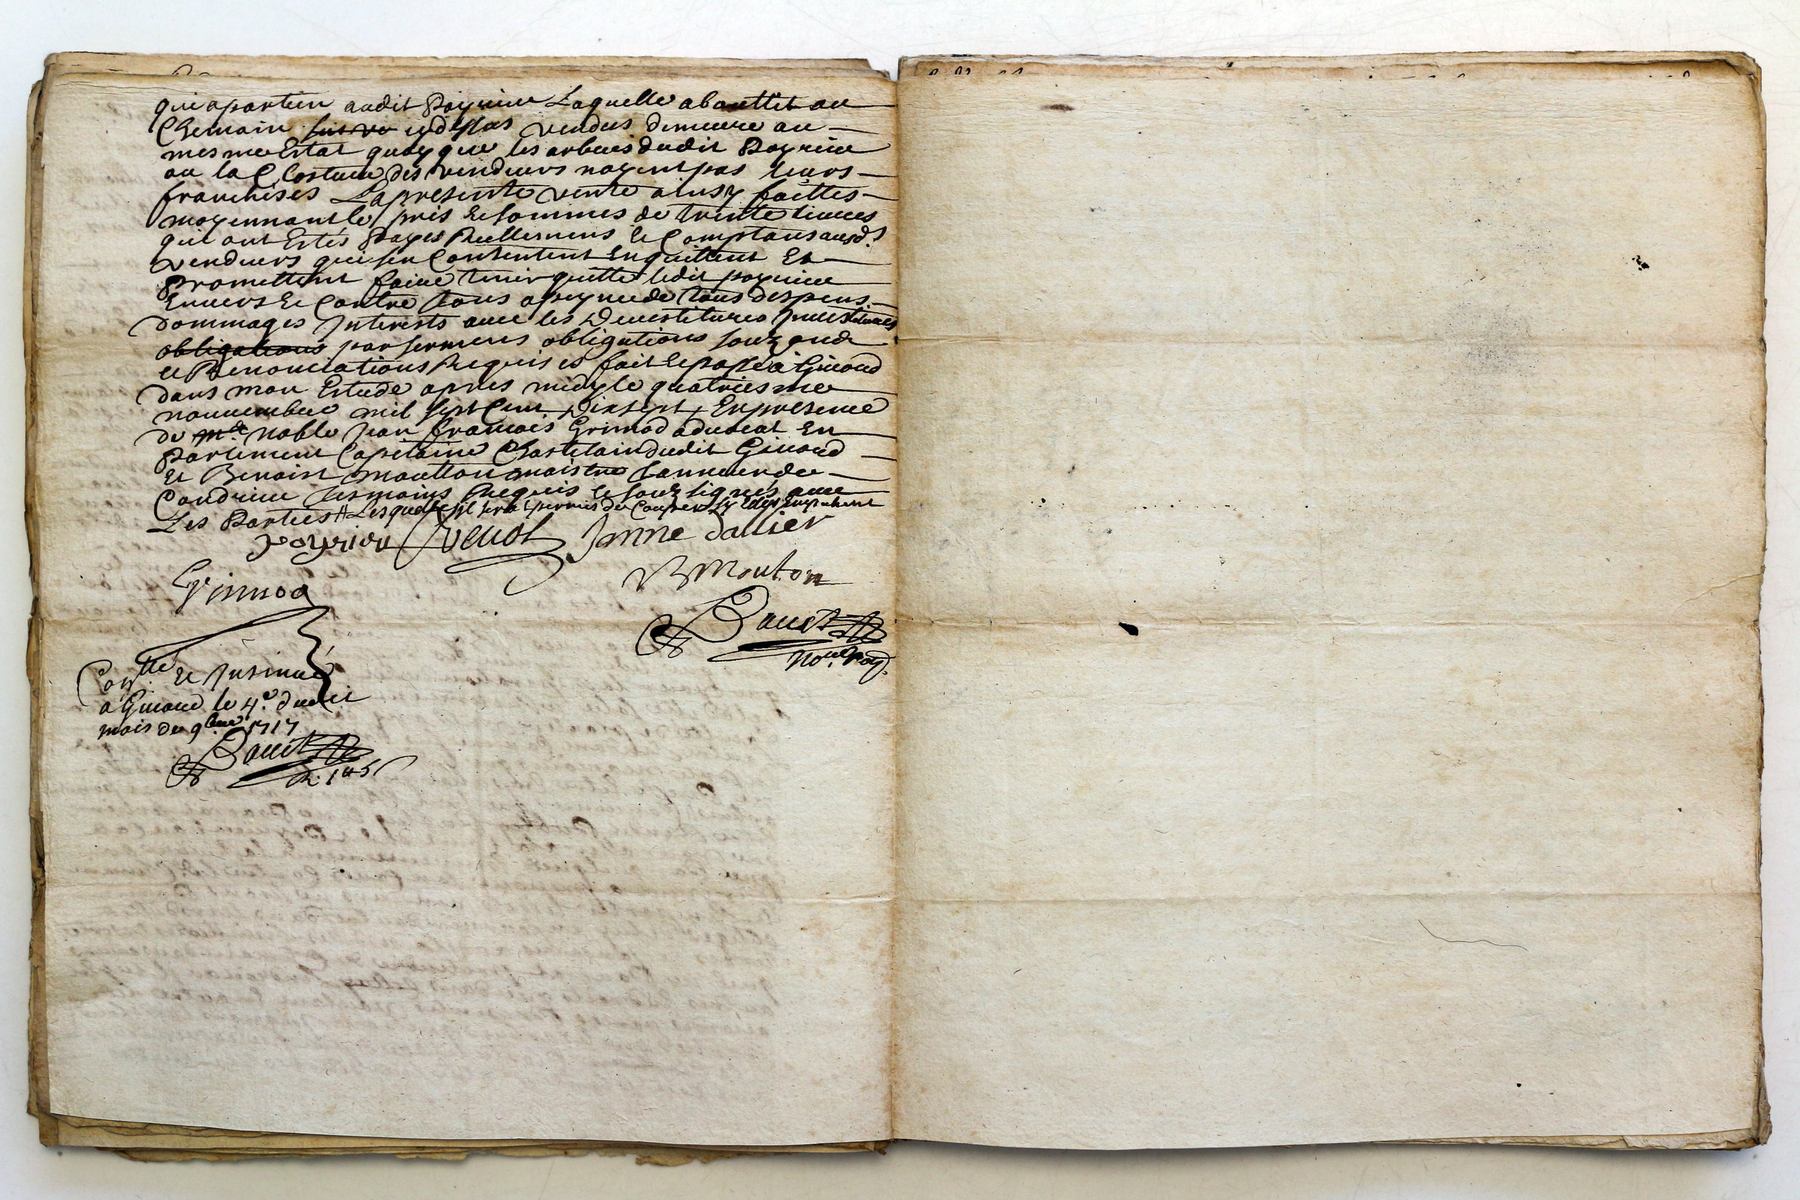 qui apartien audit Poyrieu Laquelle aboutttit au
Chemain suivru cydessus vendus demeure au
mesme Estat quoyque les arbres dudit Poyrieu
ou la Closture des vendeurs nayent pas leurs
franchises La presente vente ainsy faittes
moyennant le pris et sommes de trente livres
qui ont Estés Payes Reellemens et Comptans ausd.s
vendeurs qui sen Contentent Enquittent Et
Promettent faire tenir quitte ledit poyrieu
Envers et Contre tous a peyne de tous despens
dommages Interests avec les Devestitures Investitures
obligations par sermens obligations
et Renonciations Requis es fait et passé à Givord
dans mon Estude apres midy le quatriesme
nouvembre mil sept Cent dixsept En presence
de mre noble Jean francois Grimod advocat En
Parlement Capitaine Chastelain dudit Givord
et Benoist moutton maistre tanneur de
Condrieu tesmoins Requis et souz signés avec
Les Parties Lesquels il sera permis de Couper
poyrieu Avenol Janne dallier
Grimod
B Mouton
Bauet
Not.re Roy.
Con.tlle et Insinué
a Givord le 4.e dudit
mois de 9.bre 1717
Bauet
R. 1tt 5s